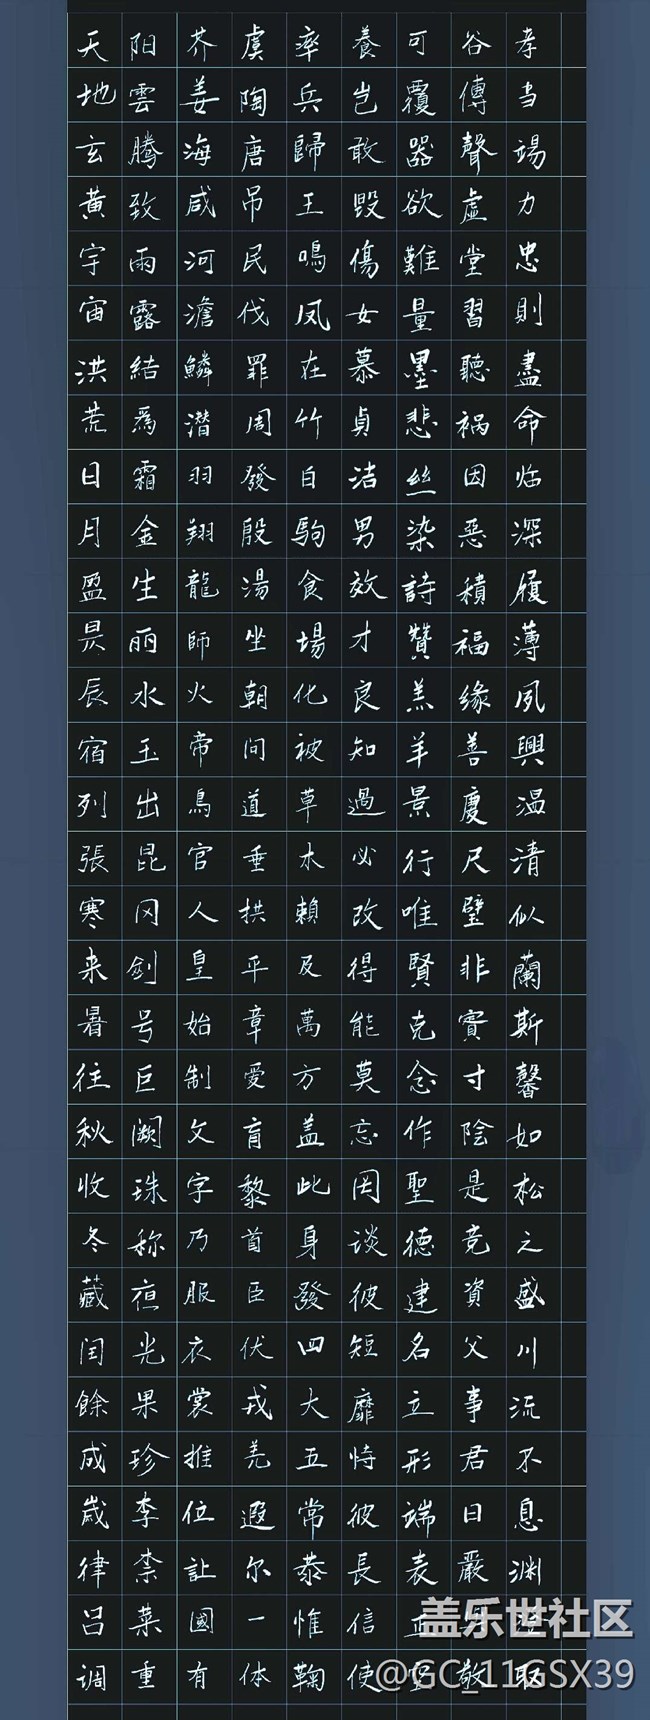 天地玄黃宇宙洪荒日月盈昃辰宿列張寒来暑往秋收冬藏闰餘成岁律吕调
阳雲腾致雨露結爲霜金生丽水玉出昆冈剑号巨阙珠称夜光果珍李柰菜重
芥姜海咸河澹鱗潜羽翔龍師火帝鳥官人皇始制文字乃服衣裳推位讓國有
虞陶唐吊民伐罪周發殷湯坐朝问道垂拱平章愛育黎首臣伏戎羌遐尔一体
率兵歸王鳴凤在竹白駒食場化被草木賴及萬方盖此身發四大五常恭惟鞠
養岂敢毁傷女慕貞洁男效才良知過必改得能莫忘罔谈彼短靡恃彼長信使
可覆器欲難量墨悲丝染詩贊羔羊景行唯賢克念作聖德建名立形端表正空
谷傳聲虛堂習聽祸因恶積福缘善慶尺璧非寶寸陰是竞資父事君曰嚴與敬
孝当竭力忠則盡命临深履薄夙興温清似蘭斯馨如松之盛川流不息渊澄取
盖乐世社区
@GC_11GSX39